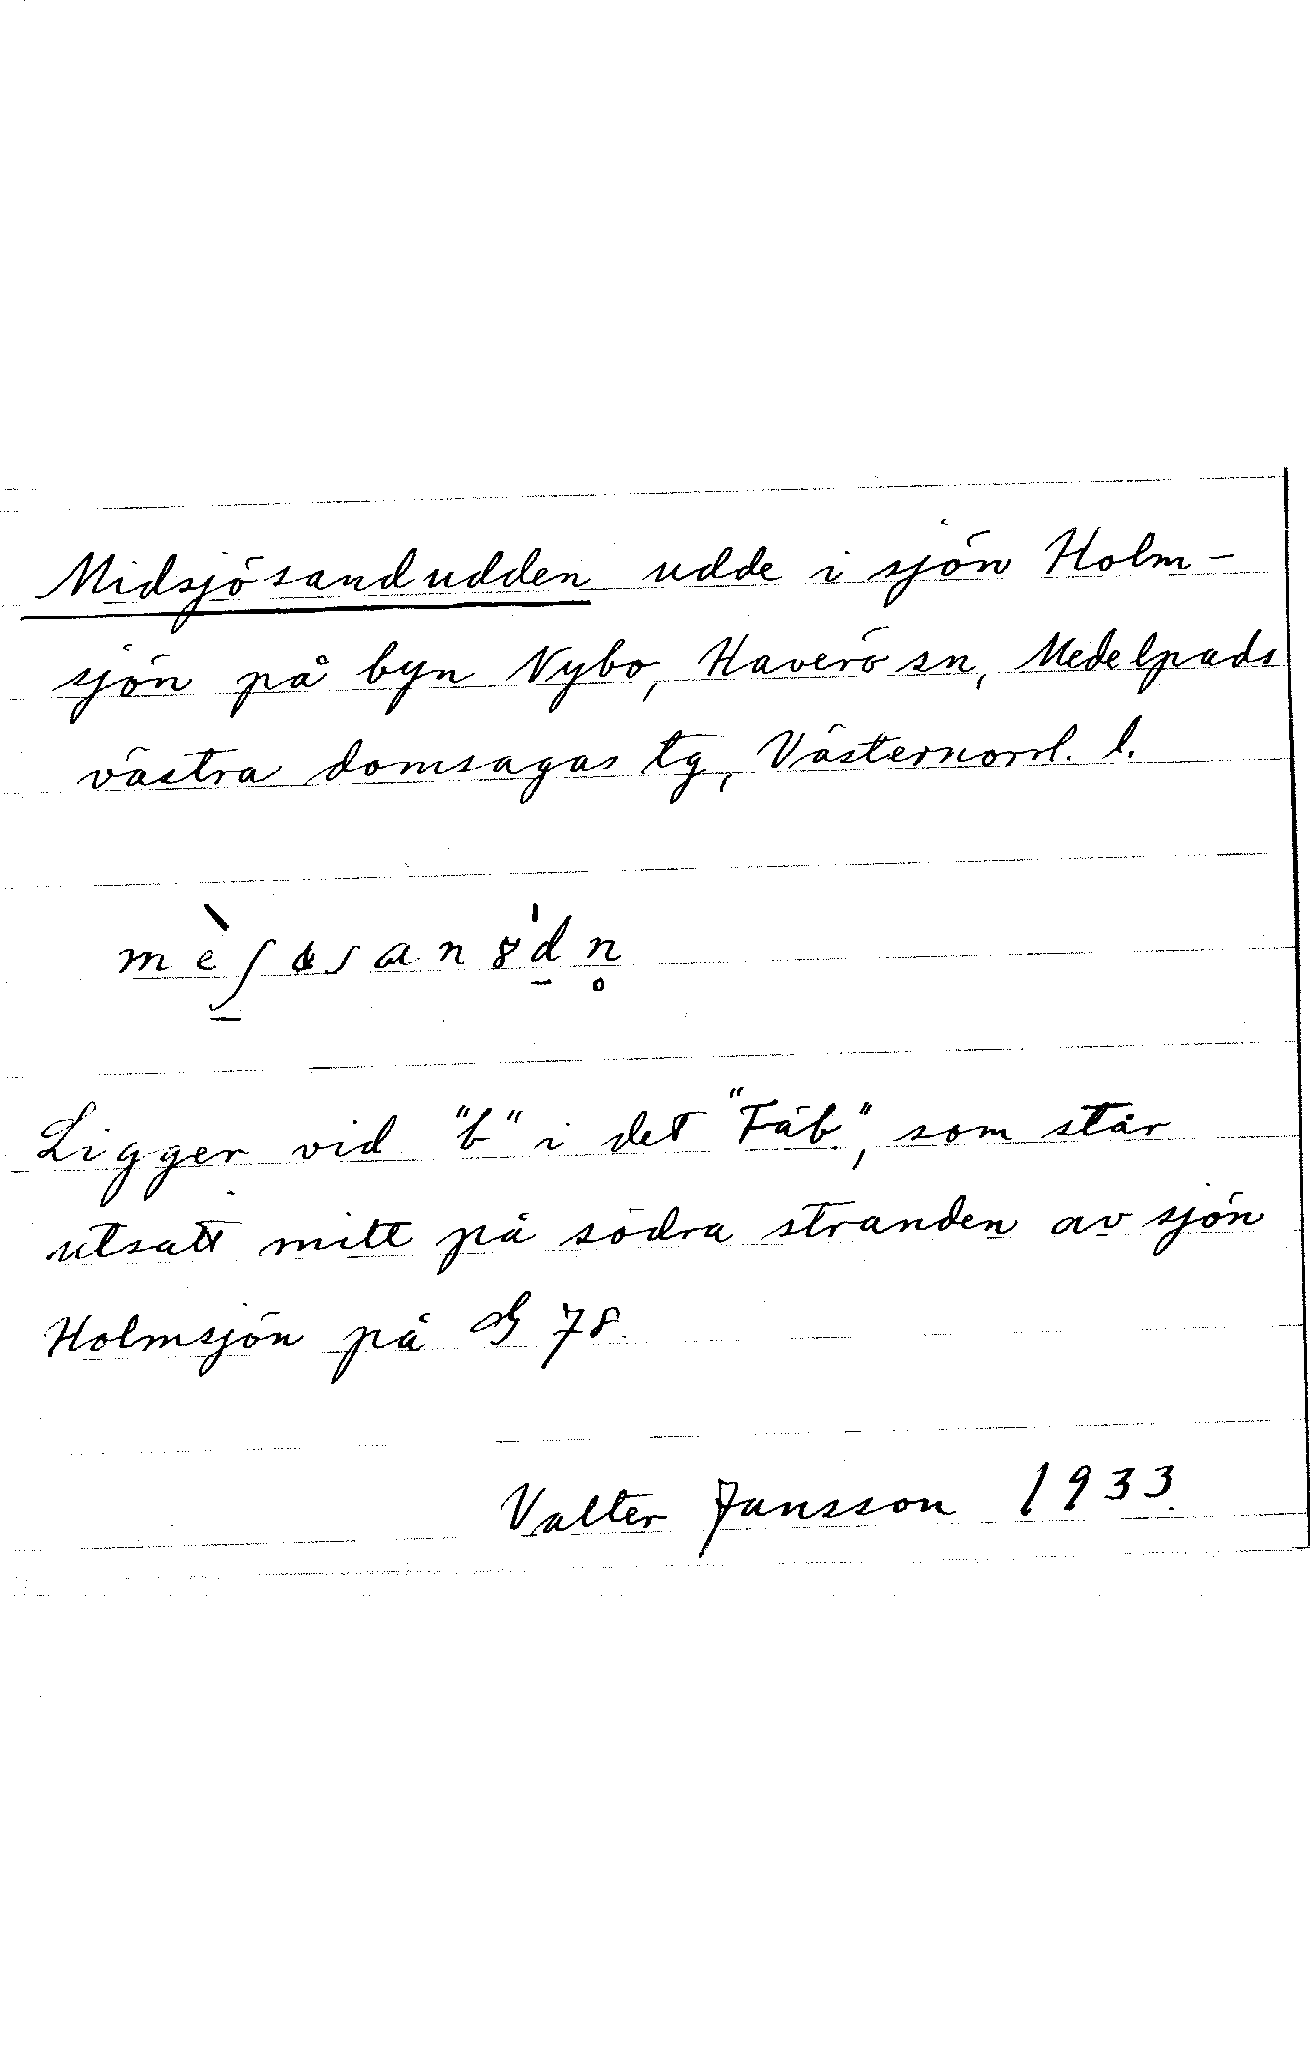 Midsjösandudden udde i sjön Holm-
sjön på byn Nybo, Haverö sn, Medelpads
västra domsagas tg, Västernorrl. l.
Ligger vid "b" i det "Fäb", som står
utsatt mitt på södra stranden av sjön
Holmsjön på G 78
Valter Jansson 1933.